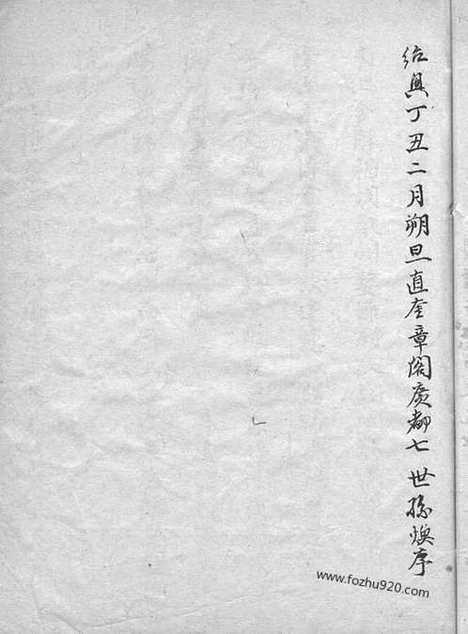 绍興丁丑二月朔旦直奎章阁廣都七世孫煥序
www.fozhu920.com